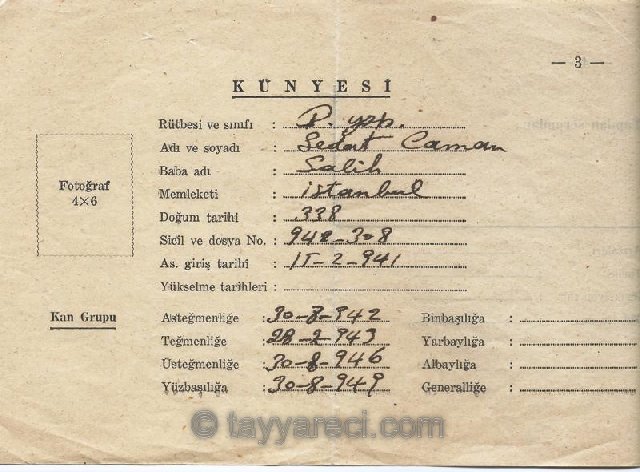 — 3 —
KÜNYESİ
Rütbesi ve sınıfı : P. yzb.
Adı ve soyadı : Sedat Caman
Baba adı : Salih
Memleketi : istanbul
Doğum tarihi : 338
Sicil ve dosya No. : 942-308
As. giriş tarihi : 15-2-941
Yükselme tarihleri :
Fotoğraf
4×6
Kan Grupu
Asteğmenliğe : 30-8-942 Binbaşılığa :
Teğmenliğe : 28-2-943 Yarbaylığa :
Üsteğmenliğe : 30-8-946 Albaylığa :
Yüzbaşılığa : 30-8-949 Generalliğe :
© tayyareci.com